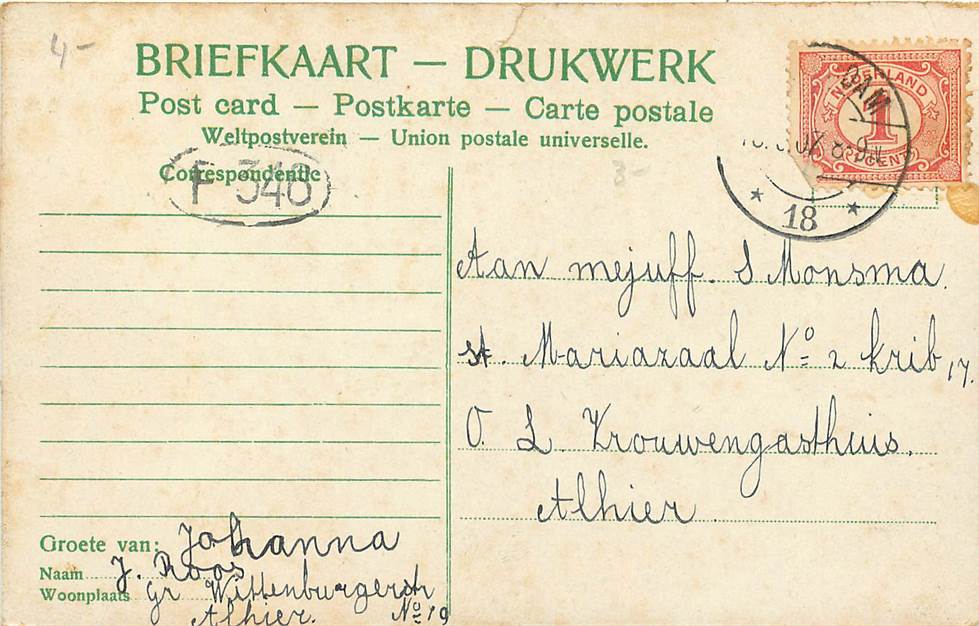 4-
BRIEFKAART — DRUKWERK
Post card — Postkarte — Carte postale
Weltpostverein — Union postale universelle.
Correspondentie
F 348
3-
NEDERLAND
1
CENT
DAM
18
Aan mejuff. S Monsma.
st. Mariazaal No 2 krib 17.
O. L. Vrouwengasthuis.
Alhier.
Groete van: Johanna
Naam J. Roos
Woonplaats gr Wittenburgerstr
Alhier. No 19